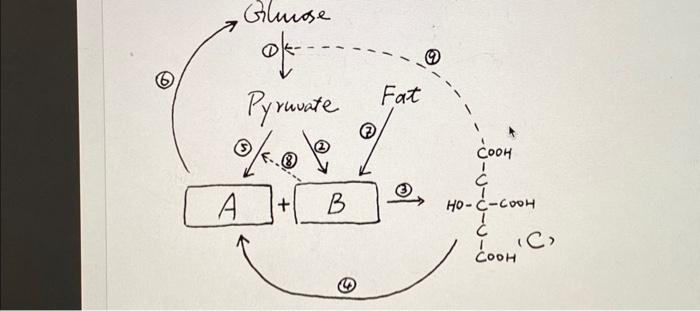 Glucose
①
⑨
⑥
Pyruvate
Fat
⑤
⑧
②
⑦
COOH
C
A + B
③
HO-C-COOH
C
COOH
(C)
④